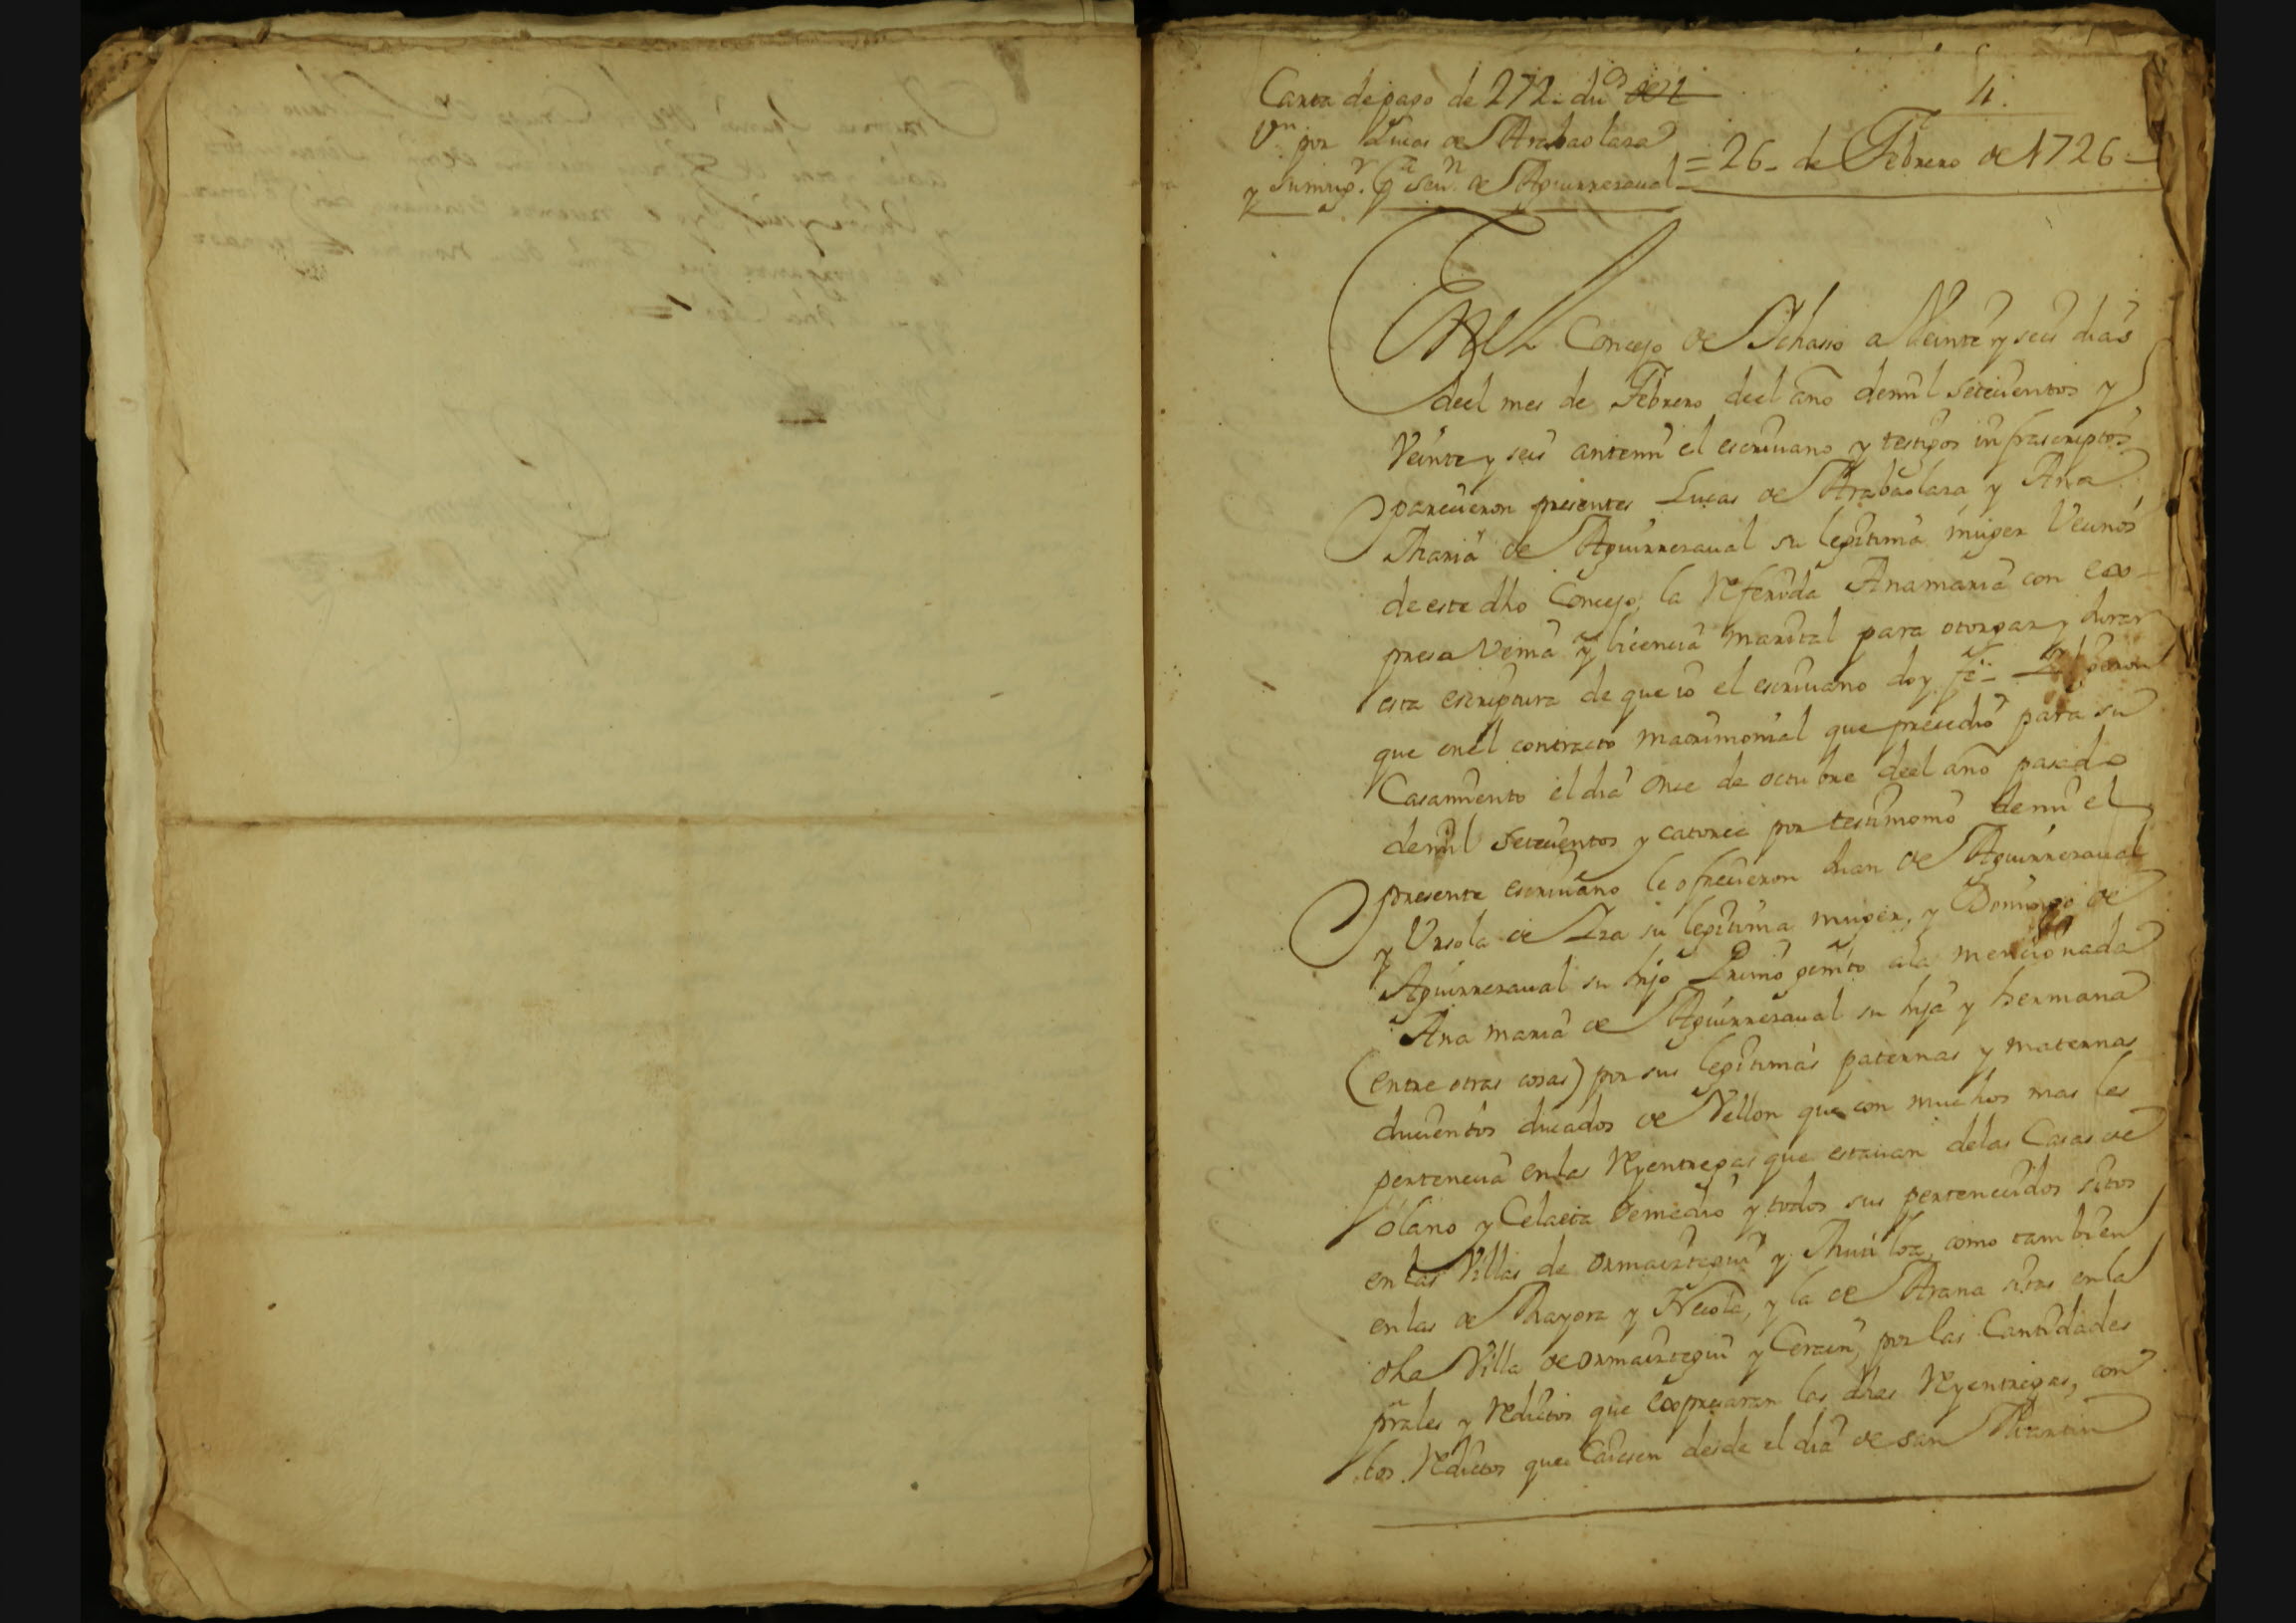 4.
Carta de pago de 272. du.os de v
V.n por Lucas de Arabaolaza
y su mug.r en fa.n de Aguirrezaual = 26 de Febrero de 1726 =
En el Concejo de Ichaso a Veinte y seis dias
deel mes de Febrero deel año de mil setecientos y
Veinte y seis ante mi el escriuano y testigos infrascriptos
parecieron presentes Lucas de Arabaolaza y Ana
Maria de Aguirrezaual su legitima muger Vecinos
de este dho Concejo, la Referida Anamaria con ex-
presa Venia y licencia marital para otorgar y Jurar
esta escriptura de que io el escriuano doy fe =
que en el contracto matrimonial que precedio para su
Casamiento el dia Once de octubre deel año pasado
de mil setecientos y catorce por testimonio de mi el
presente escriuano le ofrecieron Juan de Aguirrezaual
y Vrsola de Iza su legitima muger, y Domingo de
Aguirrezaual su hijo Primogenito ala mencionada
Ana maria de Aguirrezaual su hija y hermana
(entre otras cosas) por sus legitimas paternas y maternas
ducientos ducados de Vellon que con muchos mas les
pertenecia en las Reyentregas que estauan delas Casas de
olano y Celaeta Demedio y todos sus pertenecidos sitos
en las Villas de ormaiztegui y Mutiloa, como tambien
en las de Mayora y Necola, y la de Arana sitas en la
dha Villa de ormaiztegui y Cerain, por las Cantidades
prales y Reditos que expresaran las dhas Reyentregas, con
los Reditos que Caiesen desde el dia de san Martin